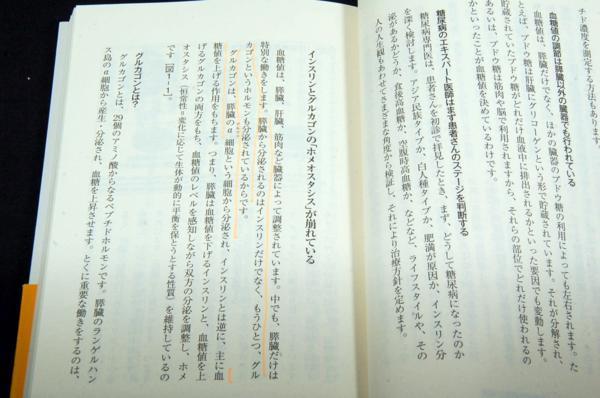 チド濃度を測定する方法もあります。
血糖値の調節は膵臓以外の臓器でも行われている
血糖値は、膵臓だけでなく、ほかの臓器のブドウ糖の利用によっても左右されます。た
とえば、ブドウ糖は肝臓にグリコーゲンという形で貯蔵されています。それが分解され、
貯蔵されていたブドウ糖がどれだけ血液中に排出されるかといった要因でも変動します。
あるいは、ブドウ糖は筋肉や脳で利用されますから、それらの部位でどれだけ使われるの
かといったことが血糖値を決めているわけです。
糖尿病のエキスパート医師はまず患者さんのステージを判断する
糖尿病専門医は、患者さんを初診で拝見したとき、まず、どうして糖尿病になったのか
を深く検討します。アジア民族タイプか、白人種タイプか、肥満が原因か、インスリン分
泌があるかどうか、食後高血糖か、空腹時高血糖か、などなど、ライフスタイルや、その
人の人生観もあわせてさまざまな角度から検証し、それにより治療方針を定めます。
インスリンとグルカゴンの「ホメオスタシス」が崩れている
血糖値は、膵臓、肝臓、筋肉など臓器によって調整されています。中でも、膵臓だけは
特別な働きをします。膵臓から分泌されるのはインスリンだけでなく、もうひとつ、グル
カゴンというホルモンも分泌されているからです。
グルカゴンは、膵臓のα細胞という細胞から分泌され、インスリンとは逆に、主に血
糖値を上げる作用をもちます。つまり、膵臓は血糖値を下げるインスリンと、血糖値を上
げるグルカゴンの両方をもち、血糖値のレベルを感知しながら双方の分泌を調整し、ホメ
オスタシス［恒常性＝変化に応じて生体が動的に平衡を保とうとする性質］を維持しているの
です［図1-1］。
グルカゴンとは？
グルカゴンとは、29個のアミノ酸からなるペプチドホルモンです。膵臓のランゲルハン
ス島のα細胞から産生・分泌され、血糖を上昇させます。とくに重要な働きをするのは、